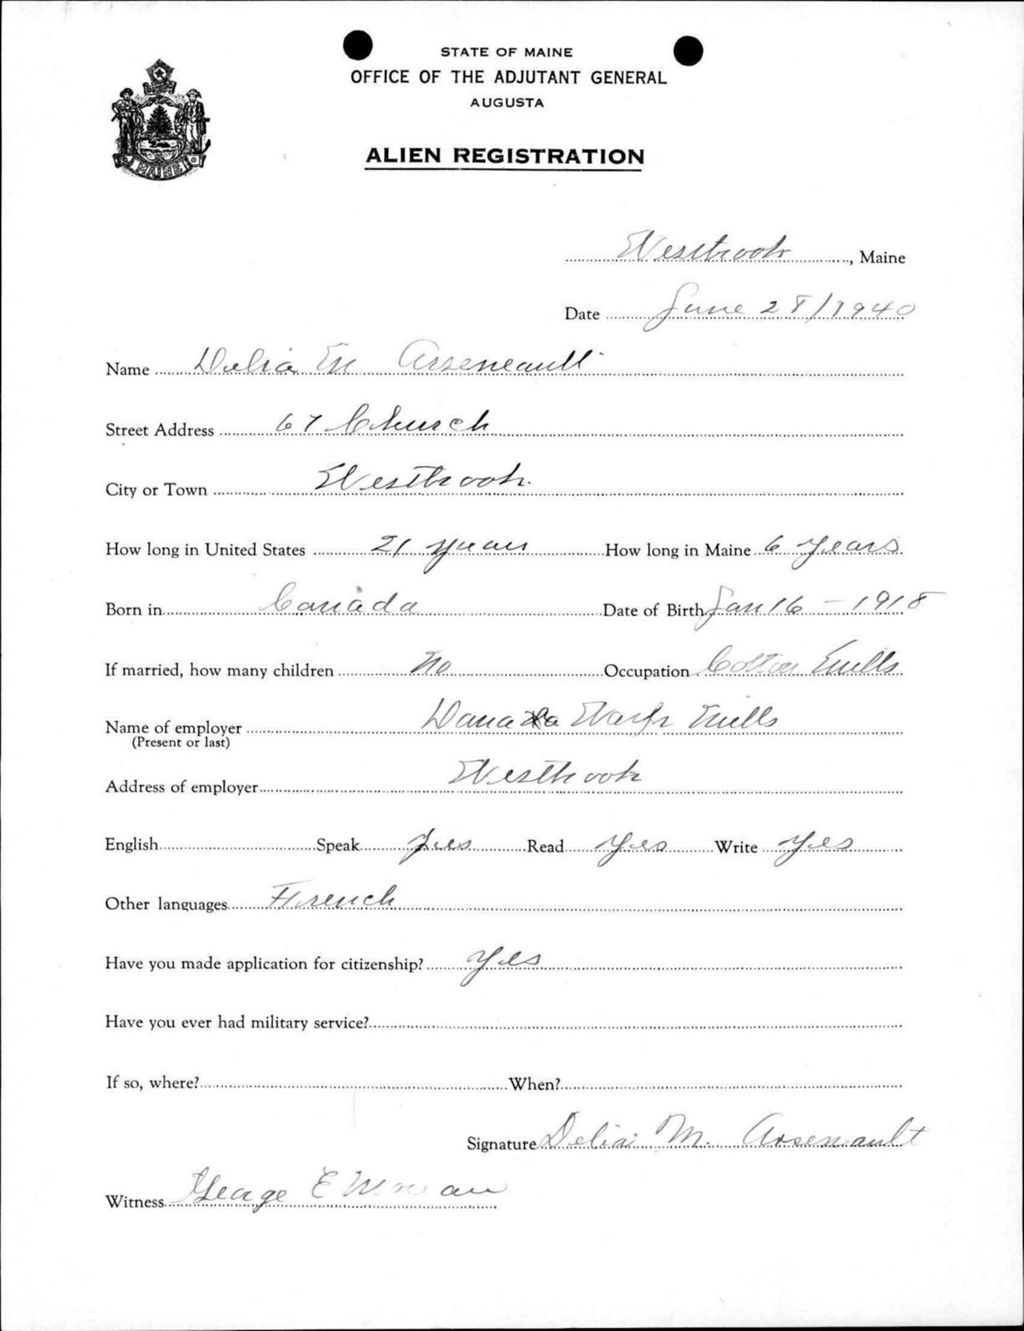 STATE OF MAINE
OFFICE OF THE ADJUTANT GENERAL
AUGUSTA
ALIEN REGISTRATION
MAINE
Westbrook, Maine
Date June 28/1940
Name Delia M Arseneault
Street Address 67 Church
City or Town Westbrook
How long in United States 21 years How long in Maine 6 years
Born in Canada Date of Birth Jan 16 - 1918
If married, how many children No Occupation Cotton Mills
Name of employer Dana Warp Mills
(Present or last)
Address of employer Westbrook
English Speak Yes Read Yes Write Yes
Other languages French
Have you made application for citizenship? Yes
Have you ever had military service?
If so, where? When?
Signature Delia M. Arsenault
Witness George E